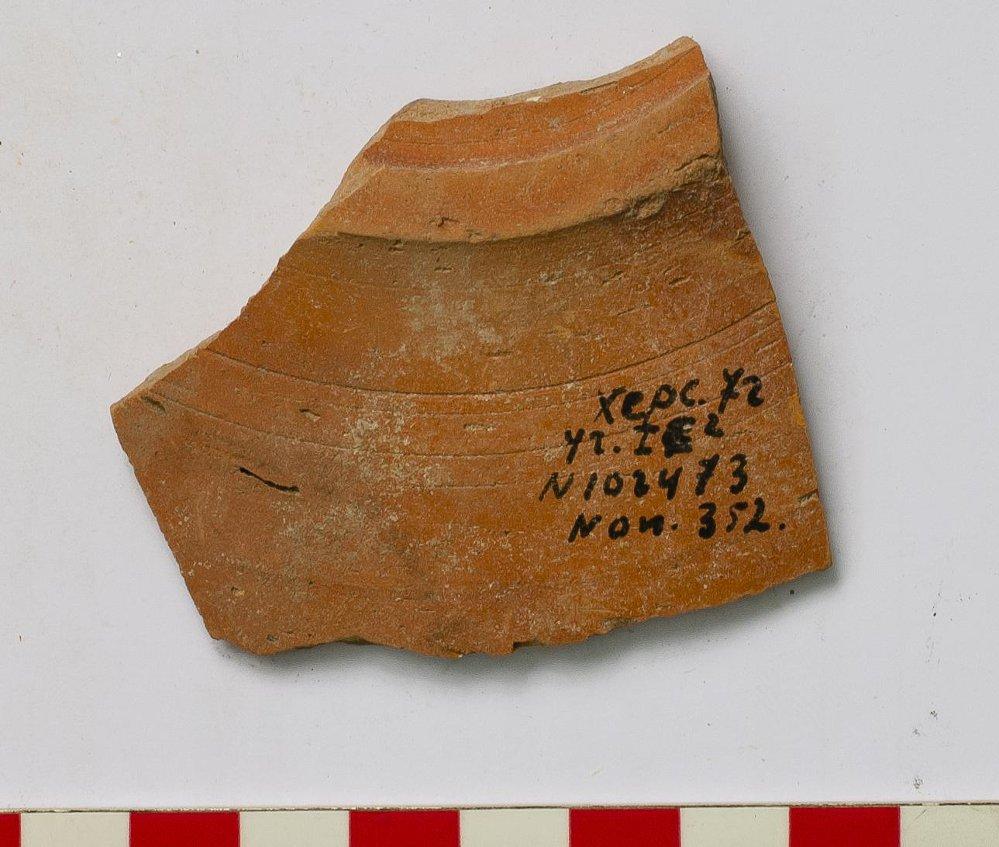 Херс. 72
уг. I 2
N 102473
N оп. 352.